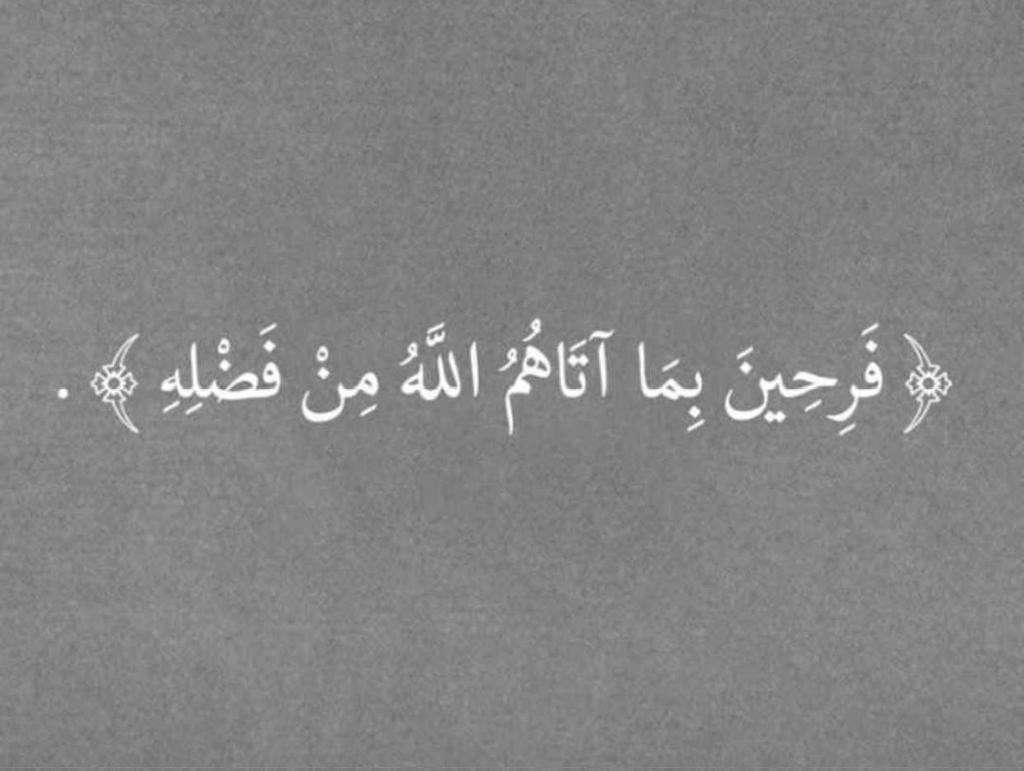 ﴿ فَرِحِينَ بِمَا آتَاهُمُ اللَّهُ مِنْ فَضْلِهِ ﴾ .